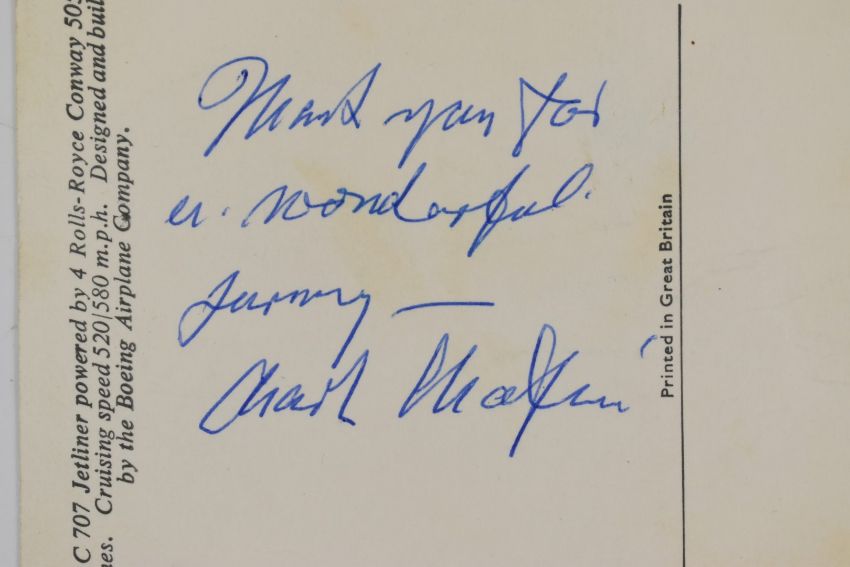 C 707 Jetliner powered by 4 Rolls-Royce Conway 50
Cruising speed 520/580 m.p.h. Designed and buil
by the Boeing Airplane Company.
Thank you for
a wonderful
journey —
Printed in Great Britain